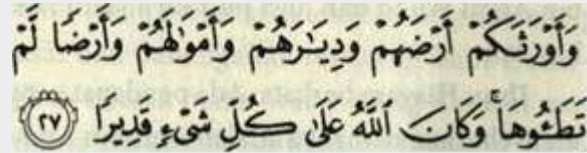 وَأَوْرَثَكُمْ أَرْضَهُمْ وَدِيَـٰرَهُمْ وَأَمْوَٰلَهُمْ وَأَرْضًا لَّمْ
تَطَـُٔوهَا ۚ وَكَانَ ٱللَّهُ عَلَىٰ كُلِّ شَىْءٍ قَدِيرًا ٢٧